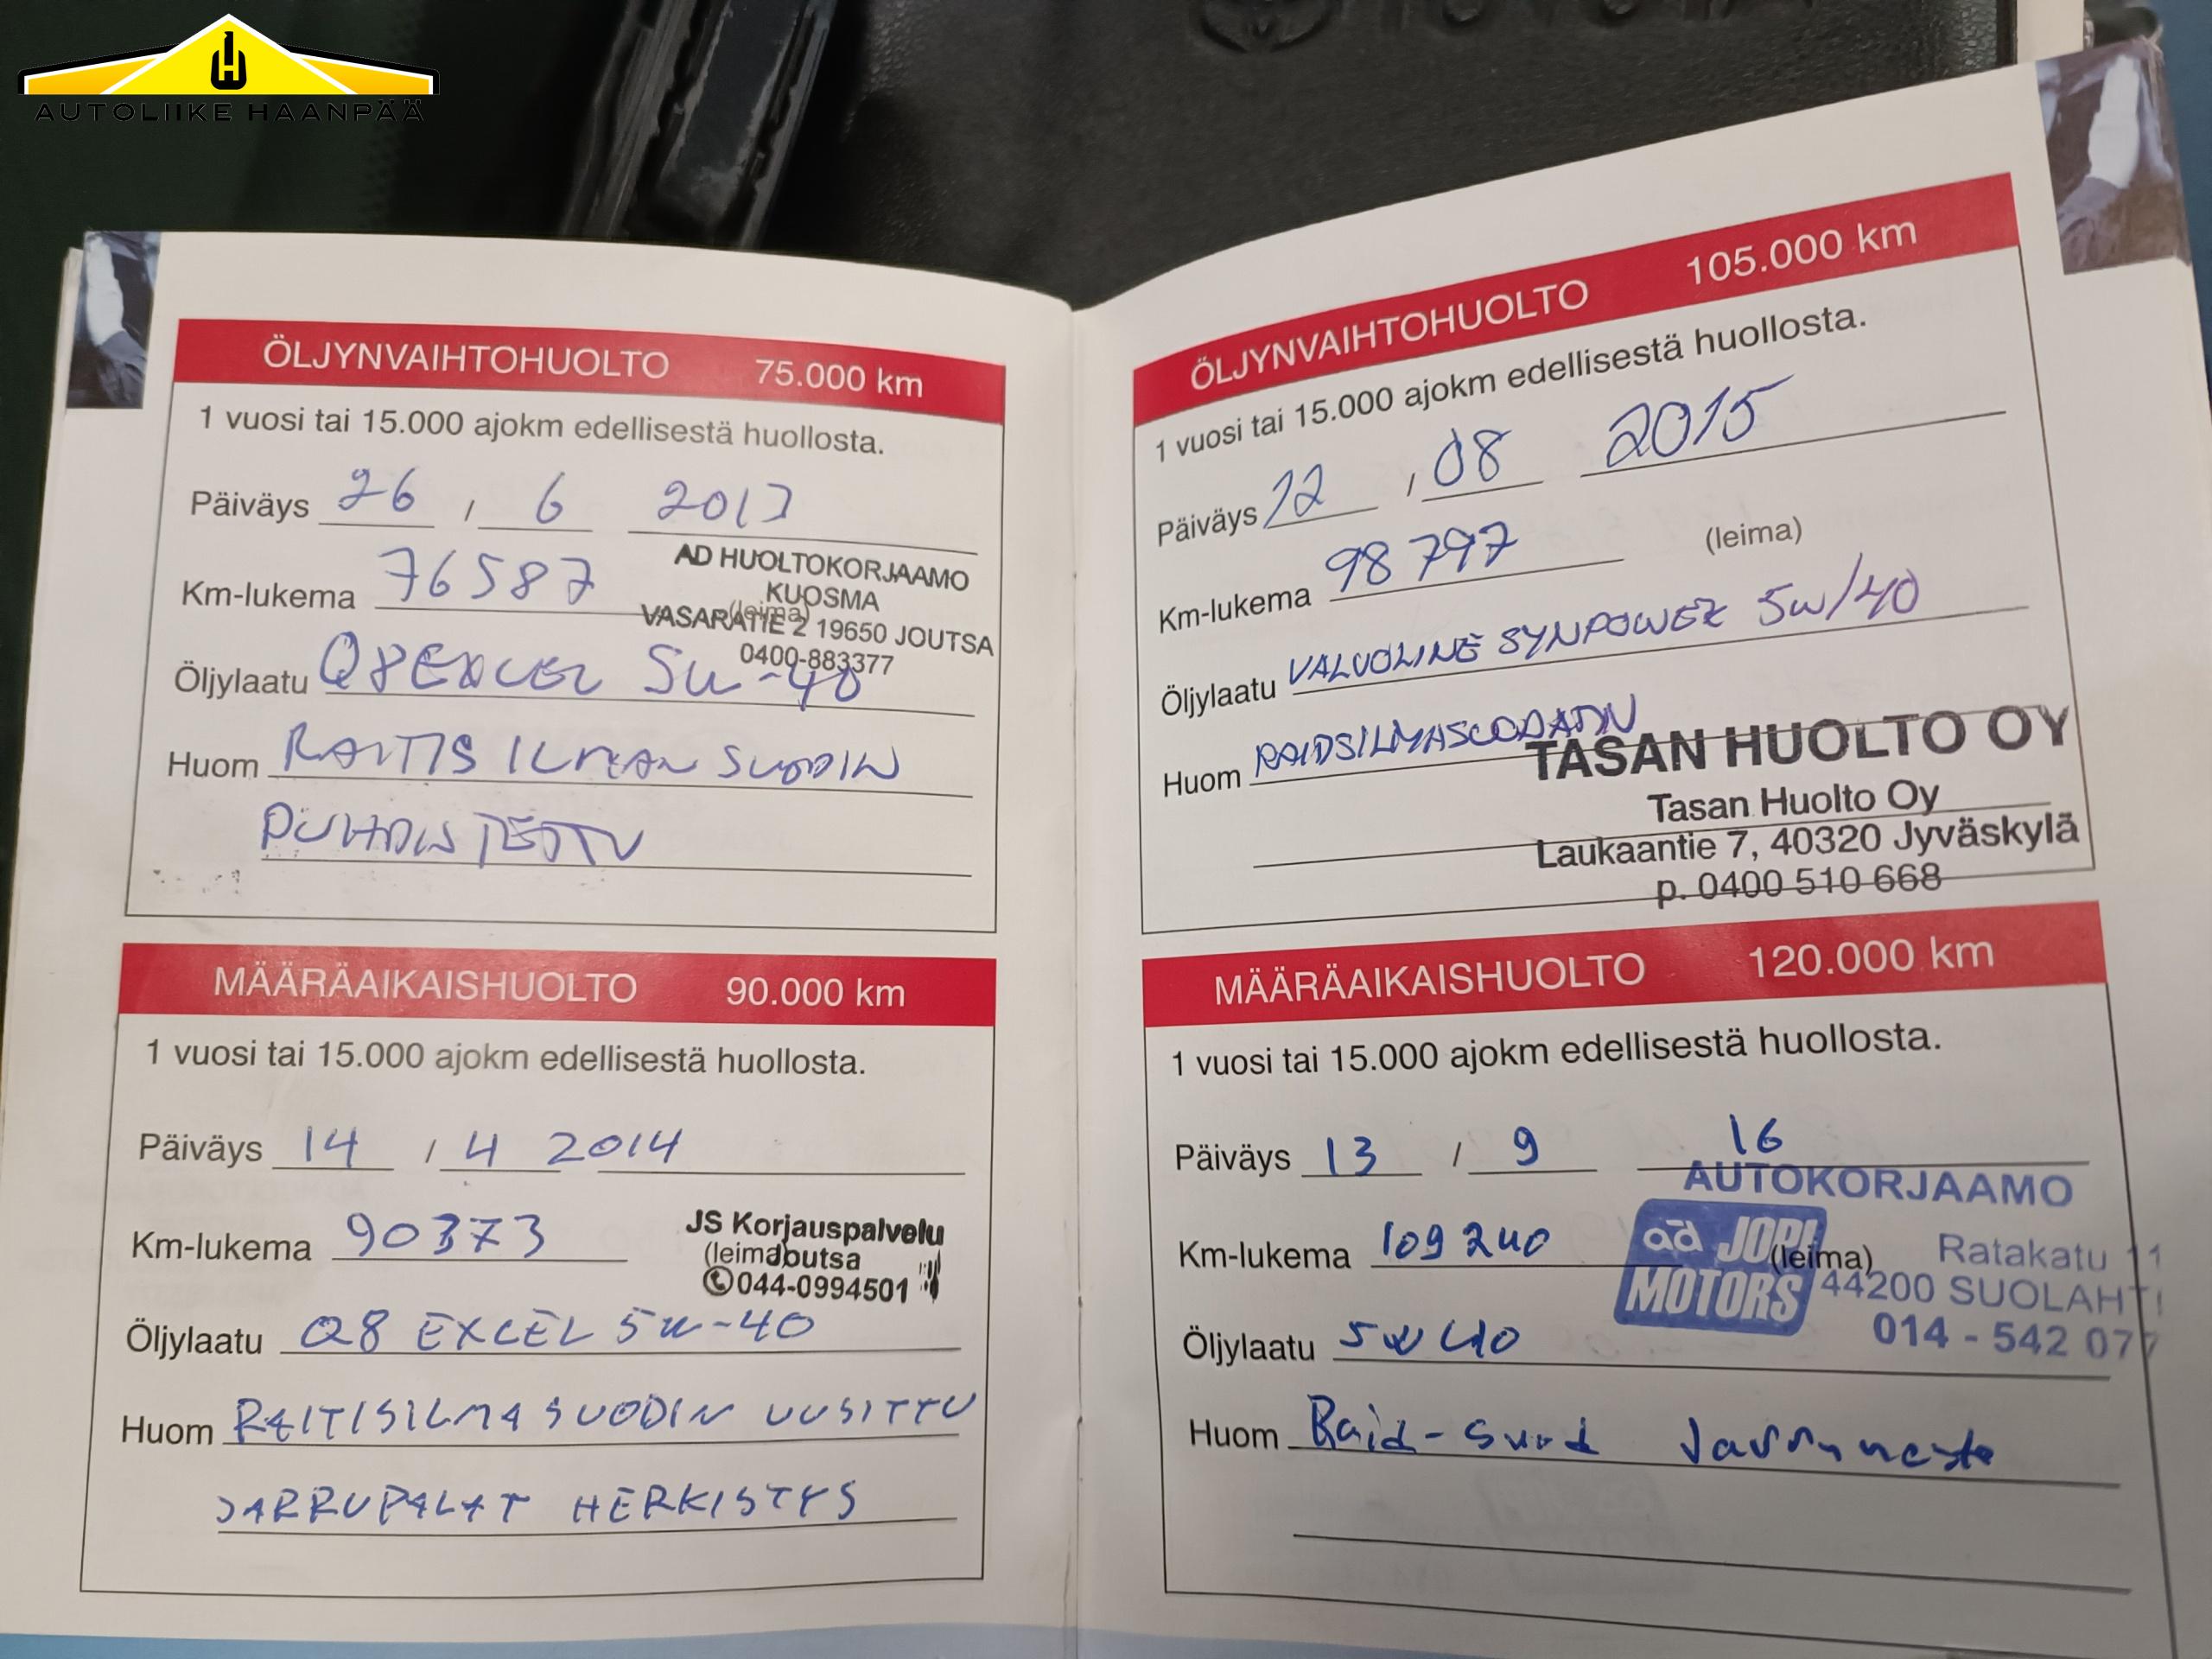 AUTOLIIKE HAANPÄÄ
ÖLJYNVAIHTOHUOLTO 75.000 km
1 vuosi tai 15.000 ajokm edellisestä huollosta.
Päiväys 26 / 6 2013
AD HUOLTOKORJAAMO
KUOSMA
Km-lukema 76587 (leima)
VASARATIE 2 19650 JOUTSA
0400-883377
Öljylaatu Q8 EXCEL 5W-40
Huom RAITIS ILMAN SUODIN
PUHDISTETTU
MÄÄRÄAIKAISHUOLTO 90.000 km
1 vuosi tai 15.000 ajokm edellisestä huollosta.
Päiväys 14 / 4 2014
JS Korjauspalvelu
Km-lukema 90373 (leima)
044-0994501
Öljylaatu Q8 EXCEL 5W-40
Huom RAITISILMA SUODIN UUSITTU
JARRUPALAT HERKISTYS
ÖLJYNVAIHTOHUOLTO 105.000 km
1 vuosi tai 15.000 ajokm edellisestä huollosta.
Päiväys 12 / 08 2015
Km-lukema 98797 (leima)
Öljylaatu VALVOLINE SYNPOWER 5W/40
Huom
TASAN HUOLTO OY
Tasan Huolto Oy
Laukaantie 7, 40320 Jyväskylä
p. 0400 510 668
MÄÄRÄAIKAISHUOLTO 120.000 km
1 vuosi tai 15.000 ajokm edellisestä huollosta.
Päiväys 13 / 9 16
AUTOKORJAAMO
Km-lukema 109240 (leima)
ad JOPI
MOTORS
Ratakatu 11
44200 SUOLAHTI
014 - 542 077
Öljylaatu 5W40
Huom Raid-suod Jarruneste